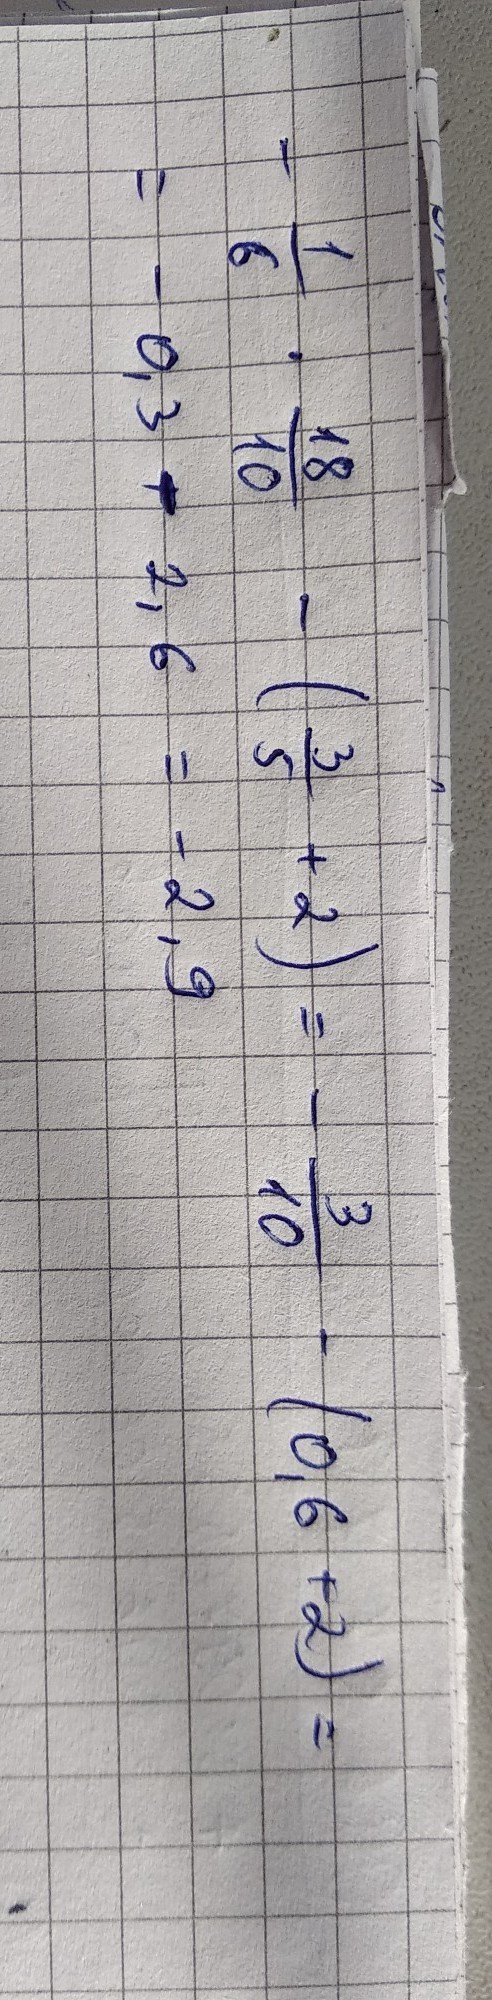 - 1/6 · 18/10 - (3/5 + 2) = - 3/10 - (0,6 + 2) =
= - 0,3 - 2,6 = - 2,9